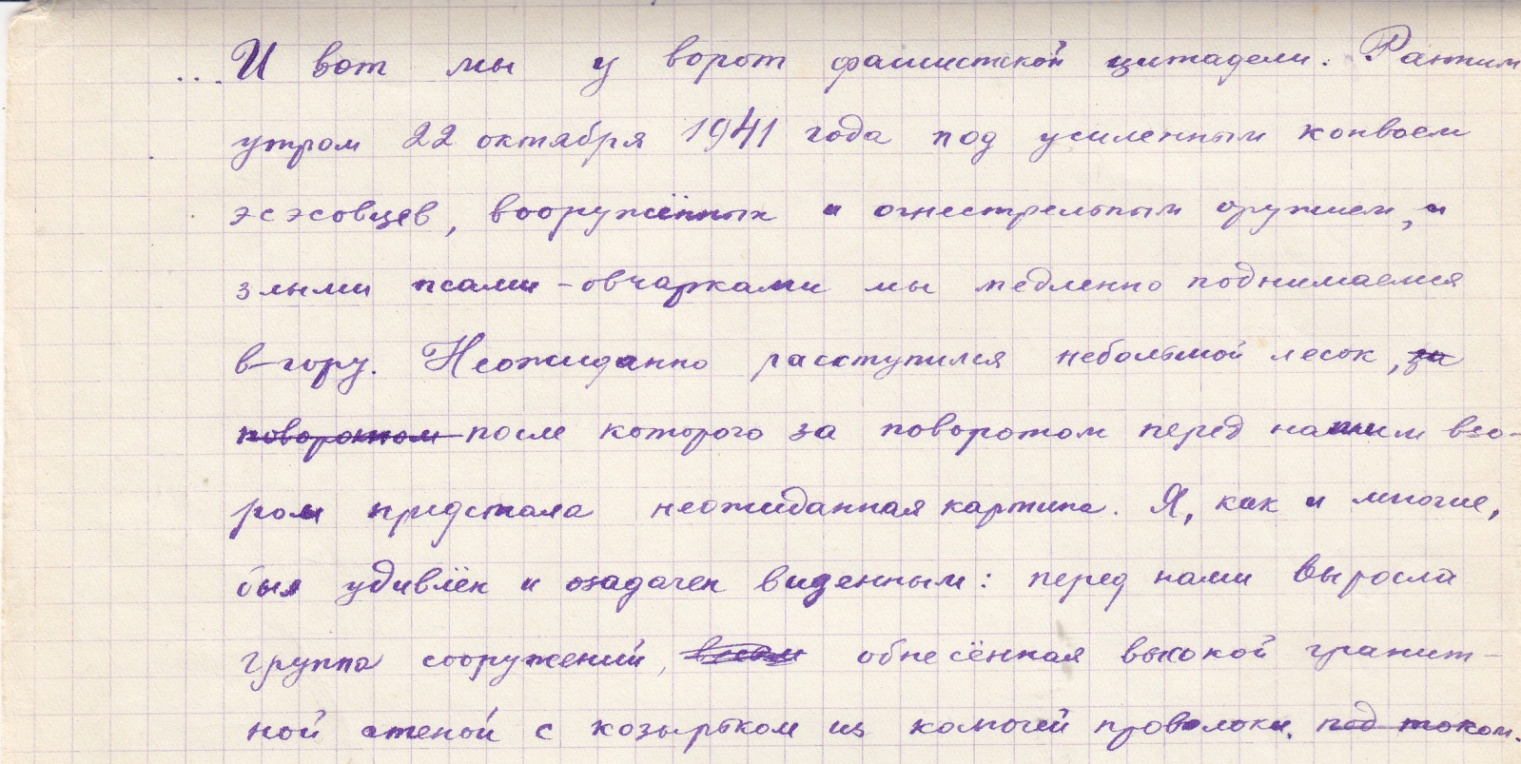 ...И вот мы у ворот фашистской цитадели. Ранним
утром 22 октября 1941 года под усиленным конвоем
эсэсовцев, вооружённых и огнестрельным оружием, и
злыми псами-овчарками мы медленно поднимаемся
в гору. Неожиданно расступился небольшой лесок, за
поворотом после которого за поворотом перед нашим взо-
ром предстала неожиданная картина. Я, как и многие,
был удивлён и озадачен виденным: перед нами выросла
группа сооружений, обнесённая высокой гранит-
ной стеной с козырьком из колючей проволоки. под током.